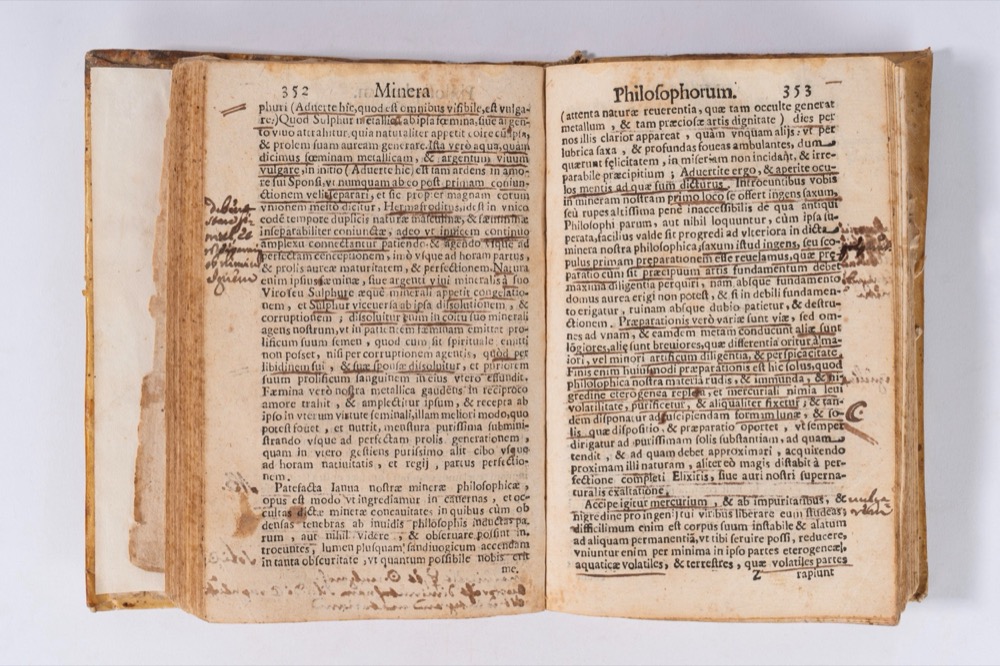 352 Minera
phuri (Aduerte hic, quod est omnibus visibile, est vulga-
re:) Quod Sulphur metallicũ ab ipsa fœmina, siue argen-
to viuo attrahitur, quia naturaliter appetit coire cũ ipsa,
& prolem suam auream generare. Ista verò aqua, quam
dicimus fœminam metallicam, & argentum viuum
vulgare, in initio (Aduerte hic) est tam ardens in amo-
re sui Sponsi, vt numquam ab eo post primam coniun-
ctionem velit separari, et sic propter magnam eorum
vnionem meltò dicitur. Hermafroditus, idest in vnico
eodẽ tempore duplicis naturæ masculinæ, & fœmininæ
inseparabiliter coniunctæ, adeo vt inuicem continuo
amplexu connectantur patiendo & agendo vsque ad
perfectam conceptionem, in ò vsque ad horam partus,
& prolis aureæ maturitatem, & perfectionem. Natura
enim ipsius fæminæ, siue argent viui mineralis à suo
Viro seu Sulphure æquè minerali appetit congelatio-
nem, et Sulphur viceuersa ab ipsa dissolutionem, &
corruptionem; dissoluitur enim in coitu suo minerali
agens nostrum, vt in patientẽ fæminam emittat pro-
lificum suum semen, quod cum sit spirituale emitti
non posset, nisi per corruptionem agentis, quòd per
libidinem sui, & suæ sponsæ dissoluitur, et puriorem
suum prolificum sanguinem in eius vtero effundit.
Fæmina verò nostra metallica gaudens in reciproco
amore trahit, & amplectitur ipsum, & recepta ab
ipso in vterum virtute seminali, illam meliori modo, quo
potest fouet, et nuttrit, menstura purissima submini-
strando vsque ad perfectam prolis generationem,
quam in vtero gestiens purissimo alit cibo vsque
ad horam natiuitatis, et regij, partus perfectio-
nem.
Patefacta Ianua nostræ mineræ philosophicæ,
opus est modo vt ingrediamur in cauernas, et oc-
cultas dictæ mineræ concauitates in quibus cùm ob
densas tenebras ab inuidis philosophis inductas pa-
rum, aut nihil videre, & obseruare possint in-
troeuntes, lumen plusquam sandiuogicum accendam
in tanta obscuritate, vt quantum possibile nobis erit
me.
Philosophorum. 353
(attenta naturæ reuerentia, quæ tam occulte generat
metallum, & tam præciosæ artis dignitate) dies per
nos illis clarior appareat, quàm vnquam alijs: vt per
lubrica saxa, & profundas foueas ambulantes, dum
quærunt felicitatem, in miseriam non incidant, & irre-
parabile præcipitium; Aduertite ergo, & aperite ocu-
los mentis ad quæ sum dicturus. Introeuntibus vobis
in mineram nostram primo loco se offert ingens saxum,
seu rupes altissima penè inaccessibilis de qua antiqui
Philosophi parum, aut nihil loquuntur, cùm ipsa su-
perata, facilius valde sit progredi ad vlteriora in dicta
minera nostra philosophica, saxum istud ingens, seu sco-
pulus primam preparationem esse reuelamus, quæ præ-
paratio cum sit præcipuum artis fundamentum debet
maxima diligentia perquiri, nam absque fundamento
domus aurea erigi non potest, & si in debili fundamen-
to erigatur, ruinam absque dubio patietur, & destru-
ctionem. Præparationis verò variæ sunt viæ, sed om-
nes ad vnam, & eamdem metam conducunt aliæ sunt
lõgiores, aliæ sunt breuiores, quæ differentia oritur à ma-
iori, vel minori artificum diligentia, & perspicacitate.
Finis enim huiusmodi præparationis est hic solus, quod
philosophica nostra materia rudis, & immunda, & ni-
gredine eterogenea repleta, et mercuriali nimia leui
volatilitate, purificetur, & aliqualiter fixetur; & tan-
dem disponatur ad suscipiendam formam lunæ, & so-
lis quæ dispositio, & præparatio oportet, vt semper
dirigatur ad purissimam solis substantiam, ad quam
tendit, & ad quam debet approximari, acquirendo
proximam illi naturam, aliter eò magis distabit à per-
fectione completi Elixiris, siue auri nostri superna-
turalis exaltatione.
Accipe igitur mercurium, & ab impuritatibus, &
nigredine pro ingenij tui viribus liberare eum studeas,
difficilimum enim est corpus suum instabile & alatum
ad aliquam permanentiã, vt tibi seruire possi, reducere,
vniuntur enim per minima in ipso partes eterogeneæ,
aquaticæ volatiles, & terrestres, quæ volatiles partes
Z rapiunt